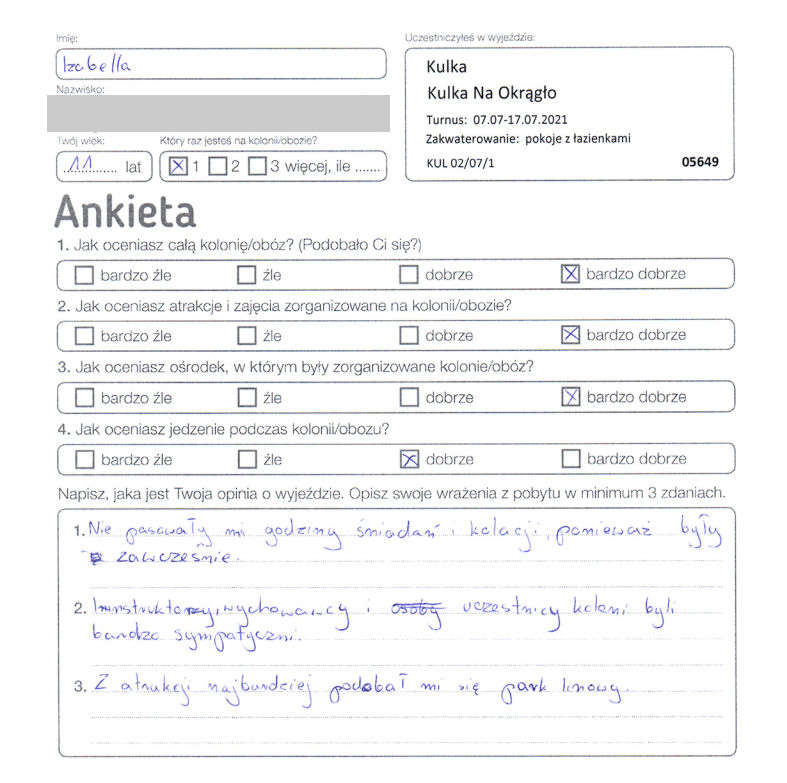 Imię:
Izabella
Nazwisko:
Twój wiek:
11 lat
Który raz jesteś na kolonii/obozie?
1 2 3 więcej, ile .......
Uczestniczyłeś w wyjeździe:
Kulka
Kulka Na Okrągło
Turnus: 07.07-17.07.2021
Zakwaterowanie: pokoje z łazienkami
KUL 02/07/1 05649
Ankieta
1. Jak oceniasz całą kolonię/obóz? (Podobało Ci się?)
bardzo źle źle dobrze bardzo dobrze
2. Jak oceniasz atrakcje i zajęcia zorganizowane na kolonii/obozie?
bardzo źle źle dobrze bardzo dobrze
3. Jak oceniasz ośrodek, w którym były zorganizowane kolonie/obóz?
bardzo źle źle dobrze bardzo dobrze
4. Jak oceniasz jedzenie podczas kolonii/obozu?
bardzo źle źle dobrze bardzo dobrze
Napisz, jaka jest Twoja opinia o wyjeździe. Opisz swoje wrażenia z pobytu w minimum 3 zdaniach.
1. Nie pasowały mi godziny śniadań i kolacji, ponieważ były
zawcześnie.
2. Instruktorzy, wychowawcy i osoby uczestnicy koloni byli
bardzo sympatyczni.
3. Z atrakcji najbardziej podobał mi się park linowy.